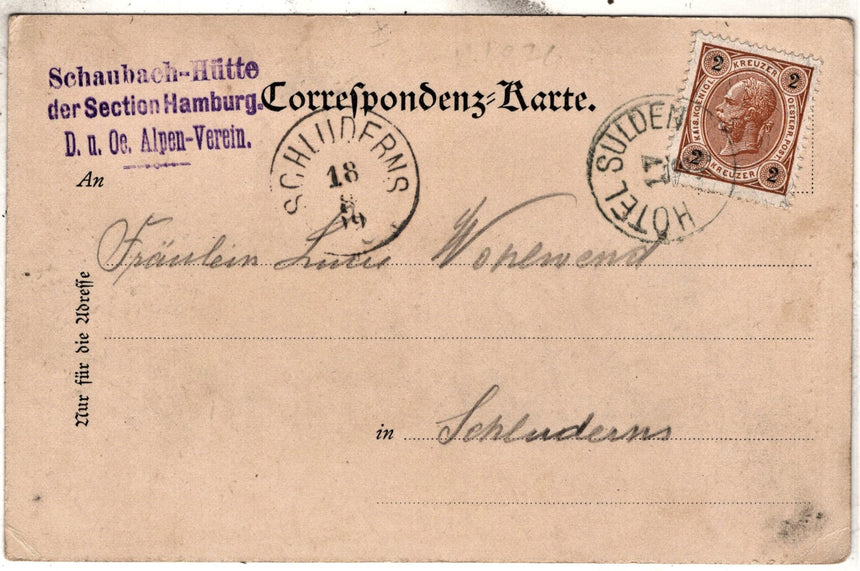 Schaubach-Hütte
der Section Hamburg.
D. u. Oe. Alpen-Verein.
Correspondenz-Karte.
SCHLUDERNS
18
8
99
HÔTEL SULDEN
17
2 KREUZER 2
KAIS. KOENIGL. OESTERR. POST.
2 KREUZER 2
An
Fräulein Lucie Wohlwend
Nur für die Adresse
in Schluderns